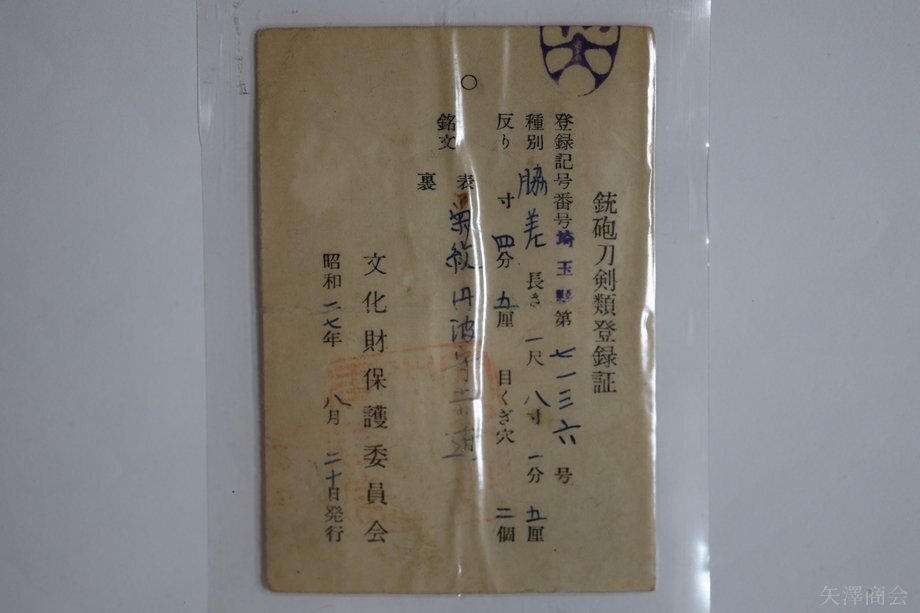 銃砲刀剣類登録証
登録記号番号 埼玉縣 第 七一三六 号
種別 脇差 長さ 一尺 八寸 一分 五厘
反り 寸 四分 五厘 目くぎ穴 二個
銘文 表 菊紋 丹波守
裏
文化財保護委員会
昭和 二七年 八月 二十日発行
矢澤商会